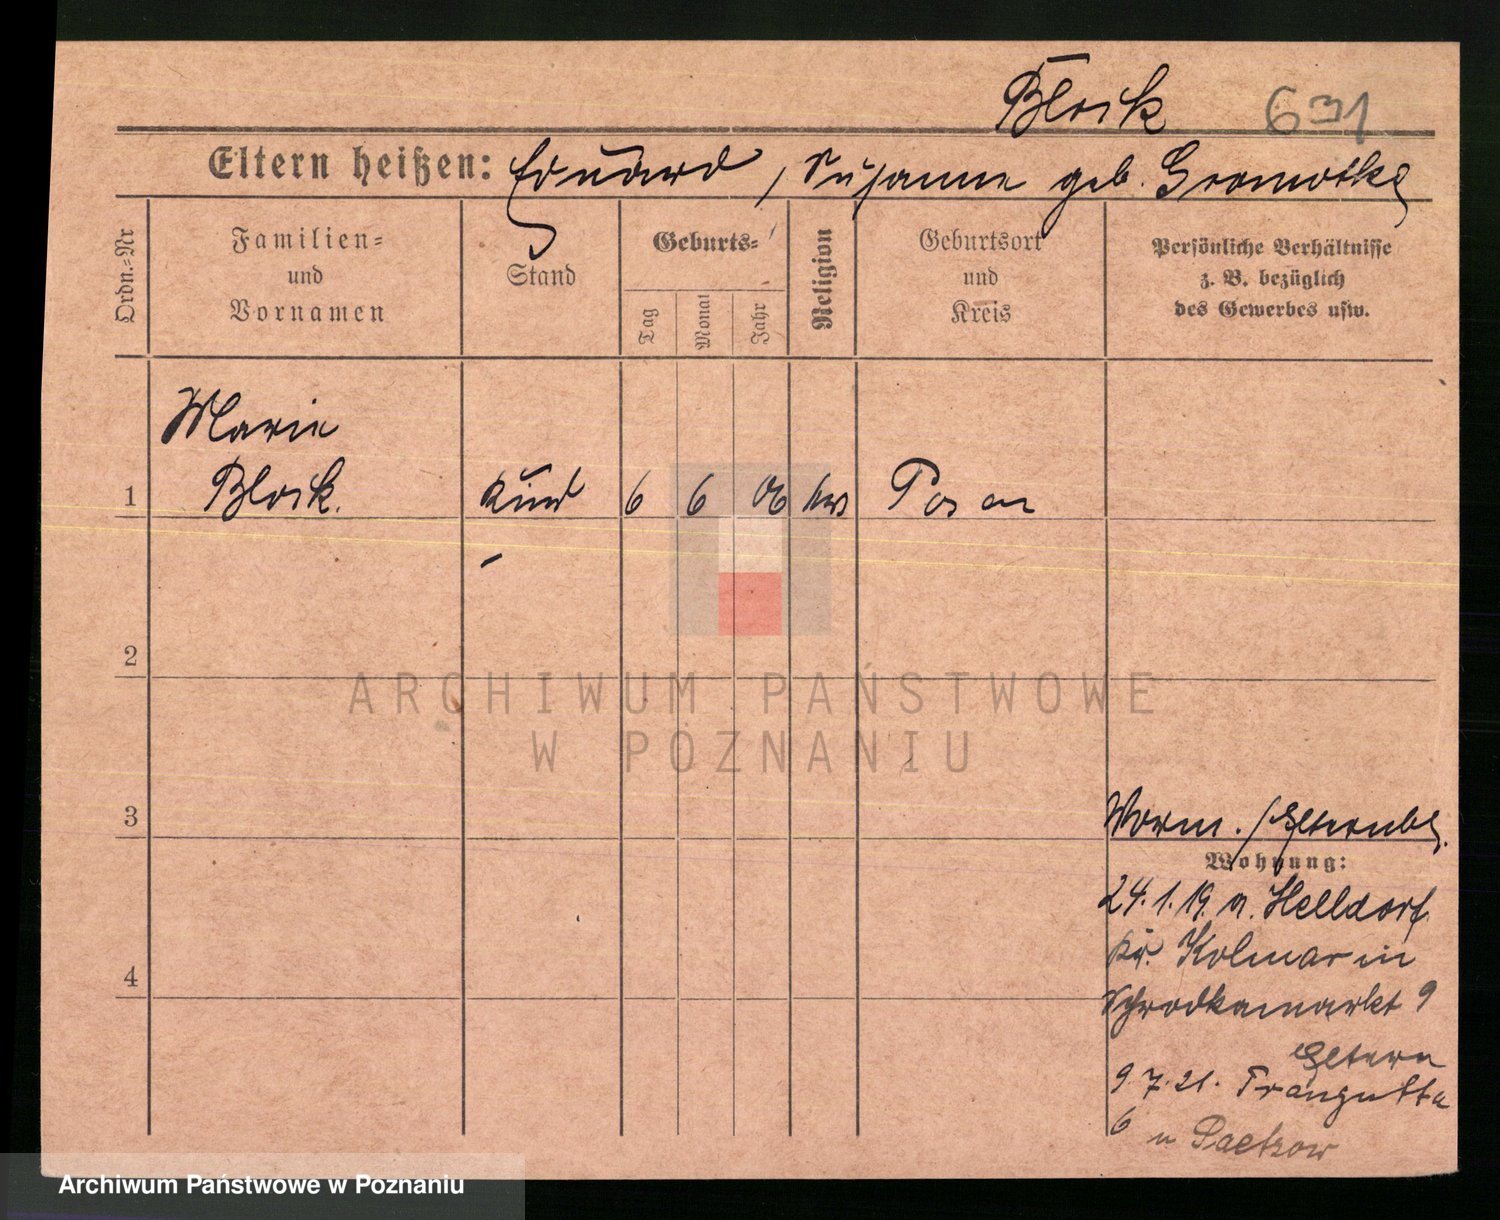 Block 631
Eltern heißen: Eduard, Susanne geb.
Ordn.-Nr
Familien-
und
Vornamen
Stand
Geburts-
Tag
Monat
Jahr
Religion
Geburtsort
und
Kreis
Persönliche Verhältnisse
z. B. bezüglich
des Gewerbes usw.
Marie
1 Block. Kind 6 6 06 Posen
2
ARCHIWUM PAŃSTWOWE
W POZNANIU
3
Wohnung:
24.1.19. n. Helldorf
Kr. Kolmar in
4
Schrodkamarkt 9
Eltern
9.7.21.
6
n
Archiwum Państwowe w Poznaniu